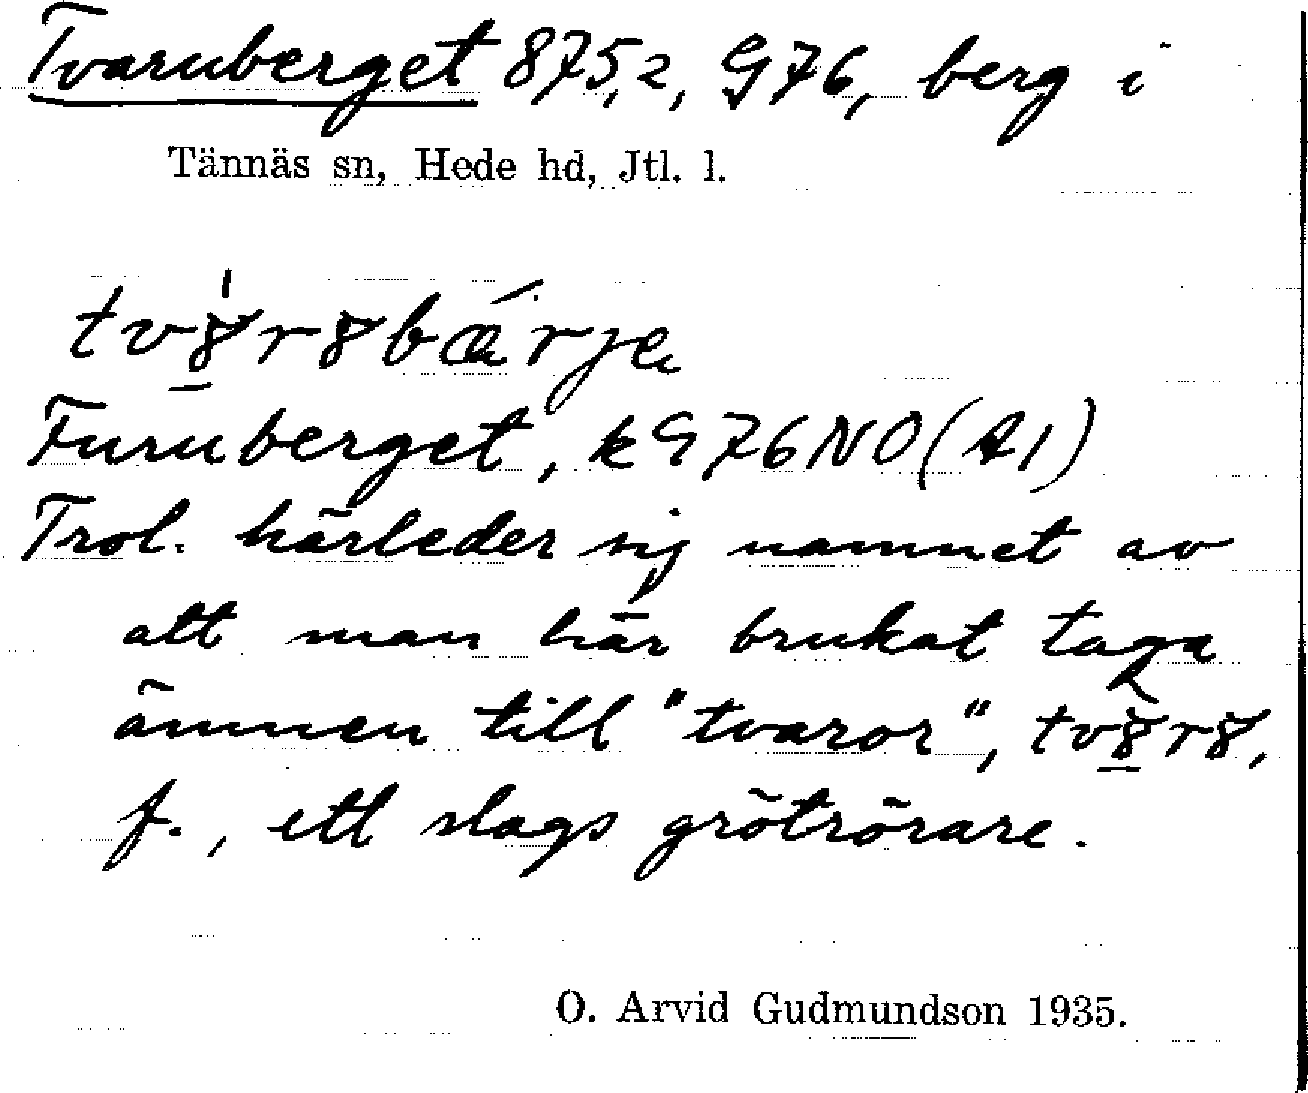 Tvaruberget 875,2, G76, berg i
Tännäs sn, Hede hd, Jtl. l.
Furuberget, kG76NO(A1)
Trol. härleder sig namnet av
att man här brukat taga
ämnen till "tvaror",
f., ett slags grötrörare.
O. Arvid Gudmundson 1935.